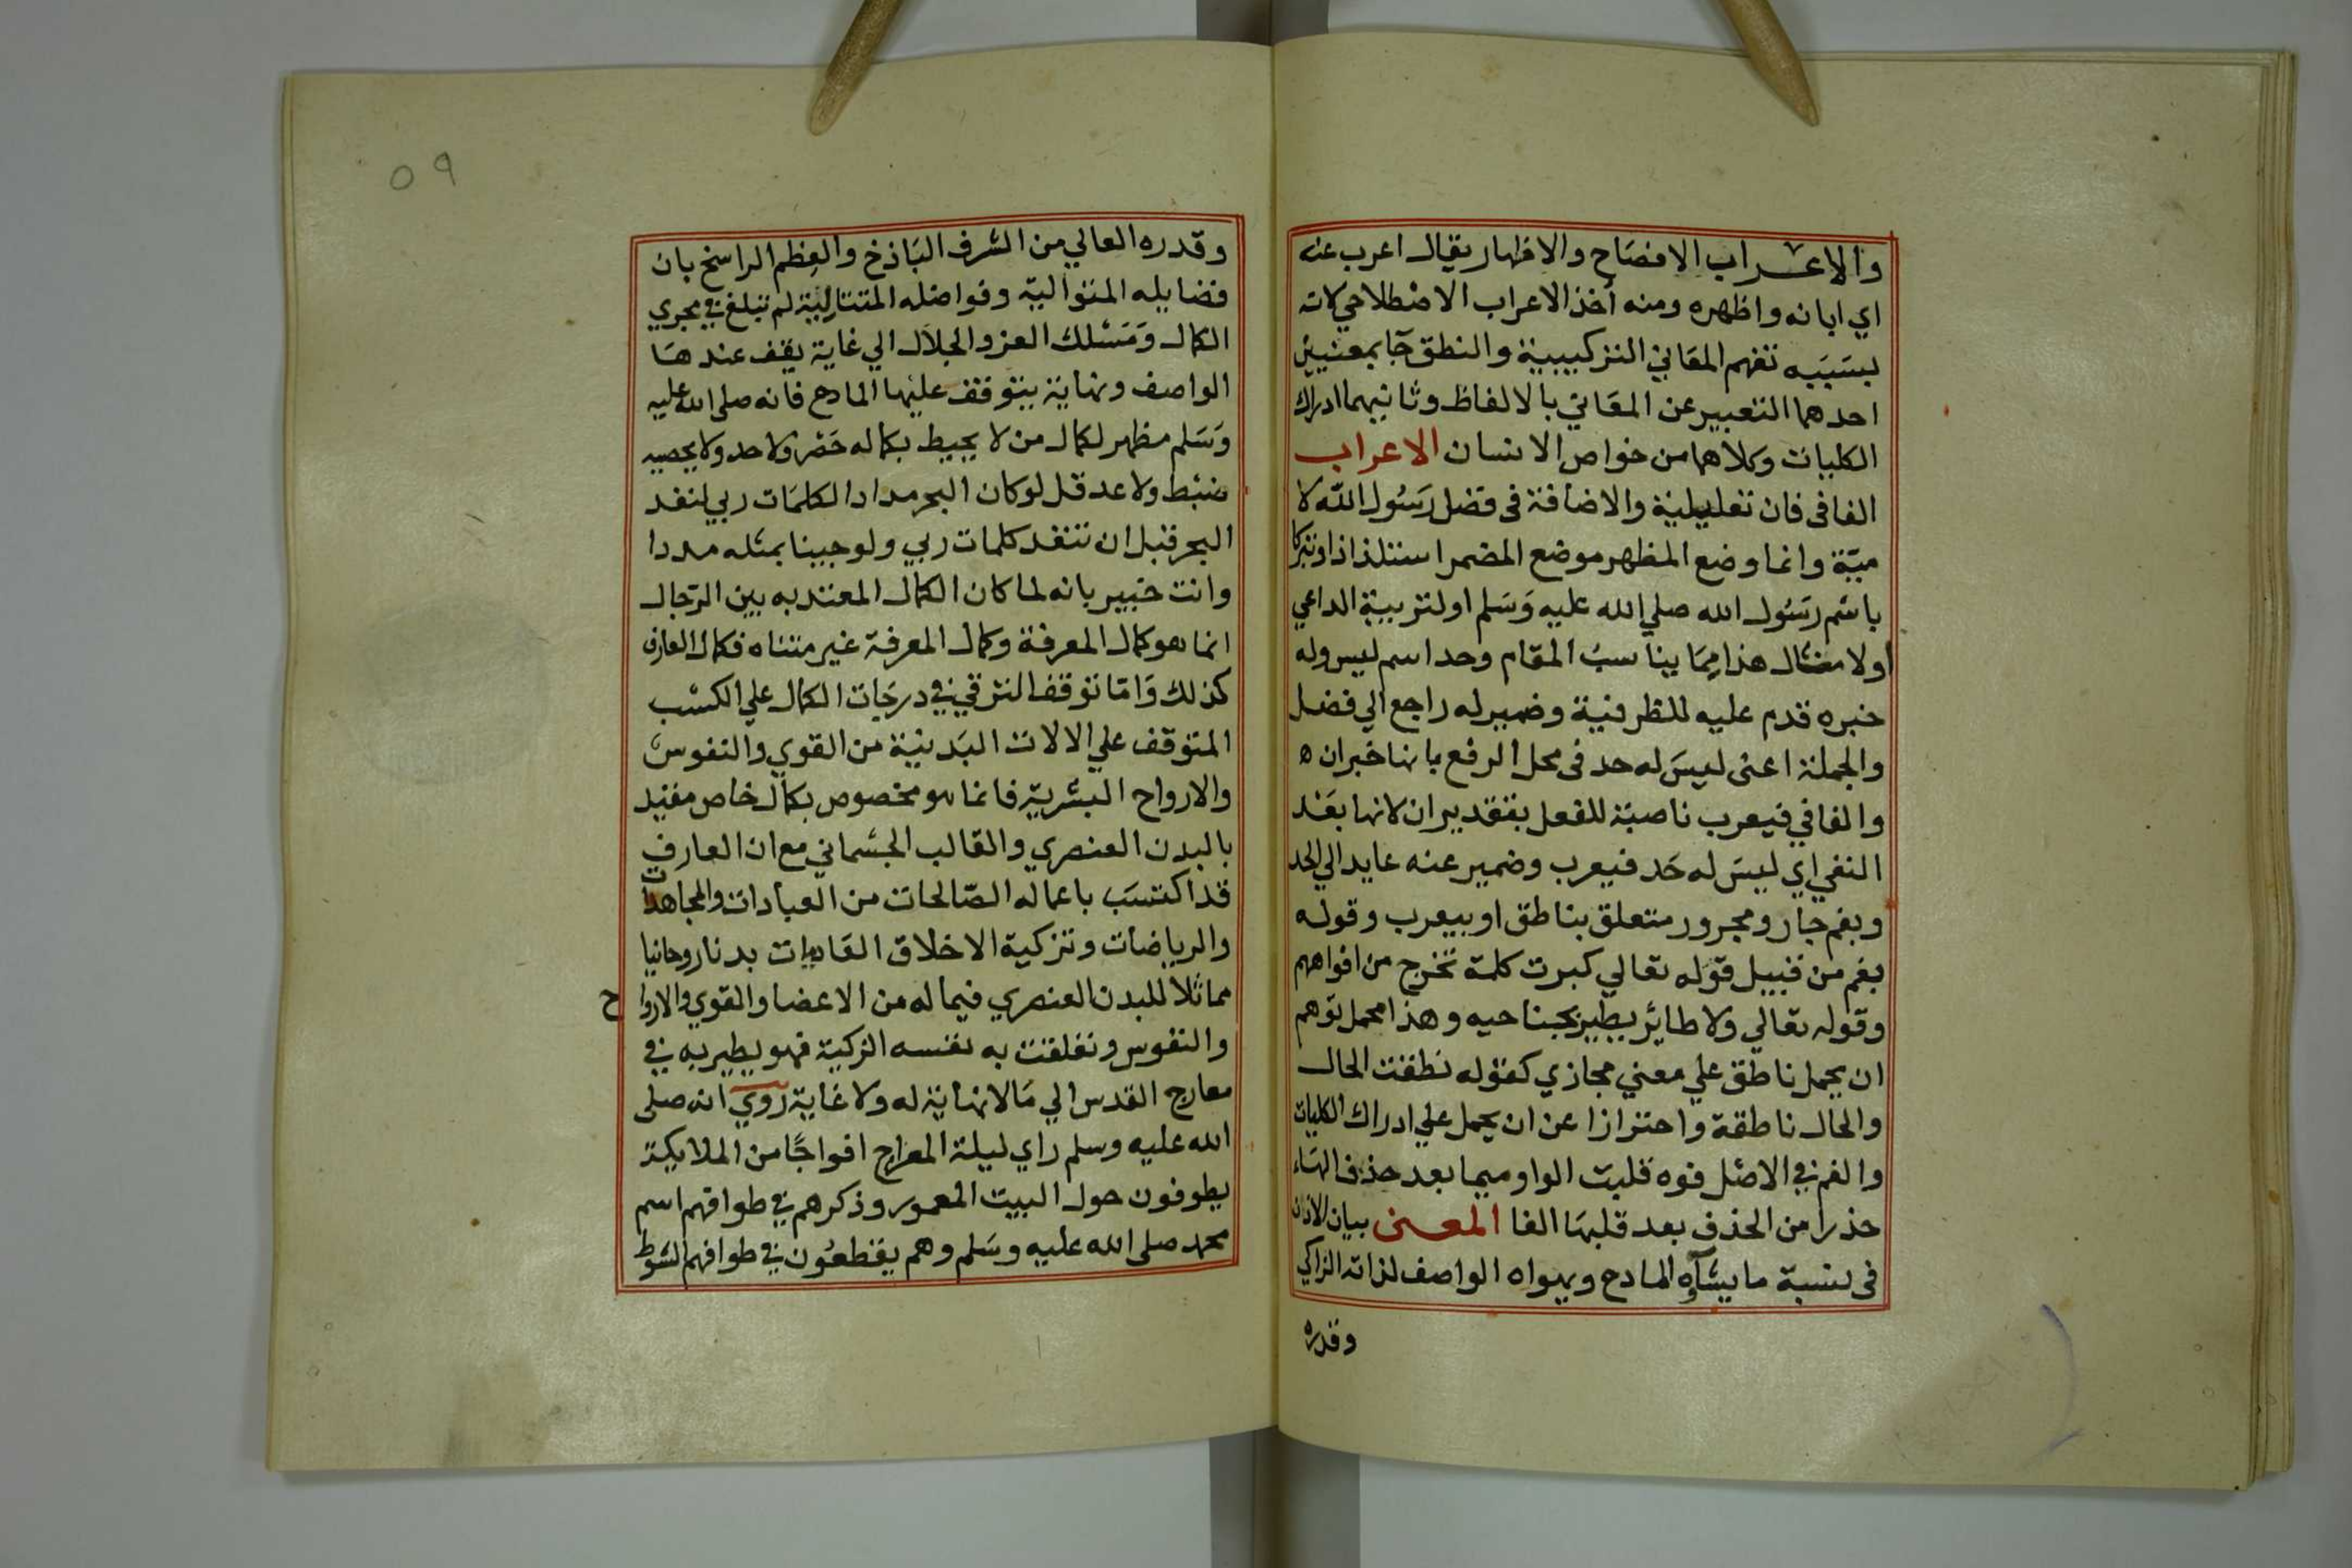 والاعراب الافصاح والاظهار يقال اعرب عنه
اي ابانه واظهره ومنه أخذ الاعراب الاصطلاحي لانه
بسببه تفهم المعاني التركيبية والنطق جآ بمعنيين
احدهما التعبير عن المعاني بالالفاظ وثانيهما ادراك
الكليات وكلاهما من خواص الانسان الاعراب
الفا في فان تعليلية والاضافة في فضل رسول الله لا
مية وانما وضع المظهر موضع المضمر استلذاذا او تبركا
باسم رسول الله صلي الله عليه وسلم او لتربية الداعي
اولا مثال هذا مما يناسب المقام وحد اسم ليس وله
خبره قدم عليه للظرفية وضمير له راجع الي فضل
والجملة اعني ليس له حد في محل الرفع بانها خبر ان ه
والفا في فيعرب ناصبة للفعل بتقدير ان لانها بعد
النفي اي ليس له حد فيعرب وضمير عنه عايد الي الحد
وبفم جار ومجرور متعلق بناطق او بيعرب وقوله
بفم من قبيل قوله تعالي كبرت كلمة تخرج من افواههم
وقوله تعالي ولا طائر يطير بجناحيه وهذا محمل توهم
ان يحمل ناطق علي معني مجازي كقوله نطقت الحال
والحال ناطقة واحترازا عن ان يحمل علي ادراك الكليات
والفم في الاصل فوه قلبت الواو ميما بعد حذف الهاء
حذرا من الحذف بعد قلبها الفا المعنى بيان الاذن
في نسبة ما يشآوه المادح ويهواه الواصف لذاته الزاكي
وقدره
٥٩
وقدره العالي من الشرف الباذخ والعظم الراسخ بان
فضايله المتوالية وفواضله المتتالية لم تبلغ في مجري
الكمال ومسلك العز والجلال الي غاية يقف عندها
الواصف ونهاية يتوقف عليها المادح فانه صلى الله عليه
وسلم مظهر لكمال من لا يحيط بكماله حصر ولا حد ولا يحصيه
ضبط ولا عد قل لو كان البحر مدادا لكلمات ربي لنفد
البحر قبل ان تنفد كلمات ربي ولو جينا بمثله مددا
وانت خبير بانه لما كان الكمال المعتد به بين الرجال
انما هو كمال المعرفة وكمال المعرفة غير متناه فكمال العارف
كذلك واما توقف الترقي في درجات الكمال علي الكسب
المتوقف علي الالات البدنية من القوي والنفوس
والارواح البشرية فانما هو مخصوص بكمال خاص مقيد
بالبدن العنصري والقالب الجسماني مع ان العارف
قد اكتسب باعماله الصالحات من العبادات والمجاهدات
والرياضات وتزكية الاخلاق العاديات بدنا روحانيا
مماثلا للبدن العنصري فيما له من الاعضا والقوي والارواح
والنفوس وتعلقت به نفسه الزكية فهو يطير به في
معارج القدس الي مالا نهاية له ولا غاية روي انه صلى
الله عليه وسلم راي ليلة المعراج افواجا من الملايكة
يطوفون حول البيت المعمور وذكرهم في طوافهم اسم
محمد صلى الله عليه وسلم وهم يقطعون في طوافهم الشوط